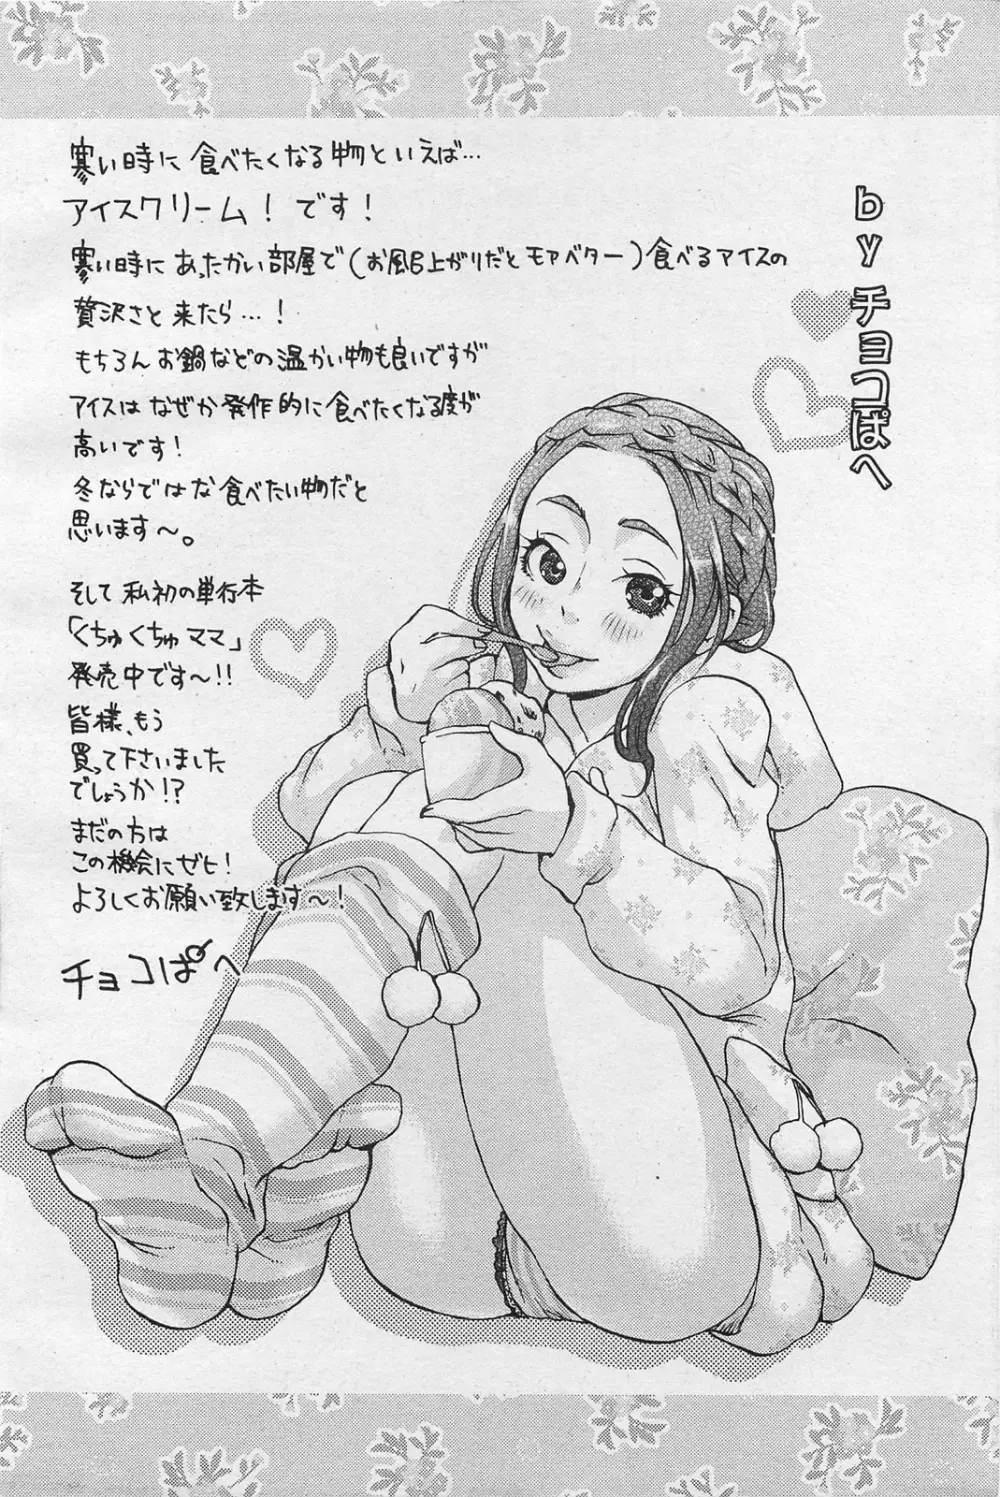 寒い時に食べたくなる物といえば…
アイスクリーム！です！
寒い時にあったかい部屋で(お風呂上がりだとモアベター)食べるアイスの
贅沢さと来たら…！
もちろんお鍋などの温かい物も良いですが
アイスはなぜか発作的に食べたくなる度が
高いです！
冬ならではな食べたい物だと
思います〜。
そして私初の単行本
「くちゅくちゅママ」
発売中です〜!!
皆様、もう
買って下さいました
でしょうか!?
まだの方は
この機会にゼヒ！
よろしくお願い致します〜！
チョコぱへ
byチョコぱへ